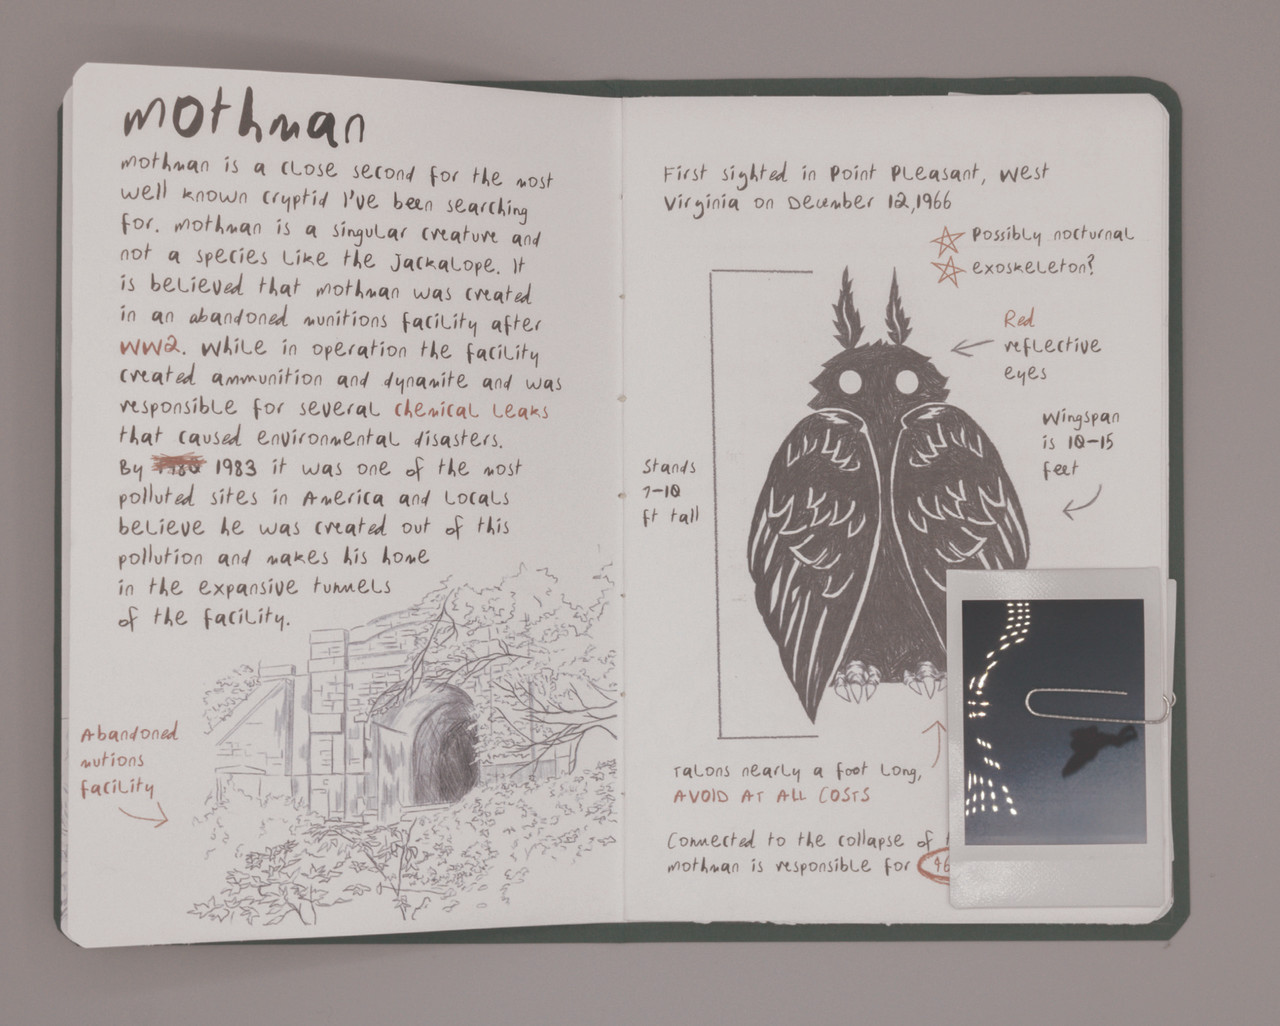 mothman
mothman is a close second for the most
well known cryptid I've been searching
for. mothman is a singular creature and
not a species like the Jackalope. It
is believed that mothman was created
in an abandoned munitions facility after
WW2. While in operation the facility
created ammunition and dynamite and was
responsible for several chemical leaks
that caused environmental disasters.
By 1983 it was one of the most
polluted sites in America and locals
believe he was created out of this
pollution and makes his home
in the expansive tunnels
of the facility.
Abandoned
mutions
facility
First sighted in Point Pleasant, West
Virginia on December 12, 1966
Possibly nocturnal
exoskeleton?
Red
reflective
eyes
Wingspan
is 10-15
feet
Stands
7-10
ft tall
Talons nearly a foot long,
AVOID AT ALL COSTS
Connected to the collapse of
mothman is responsible for 46